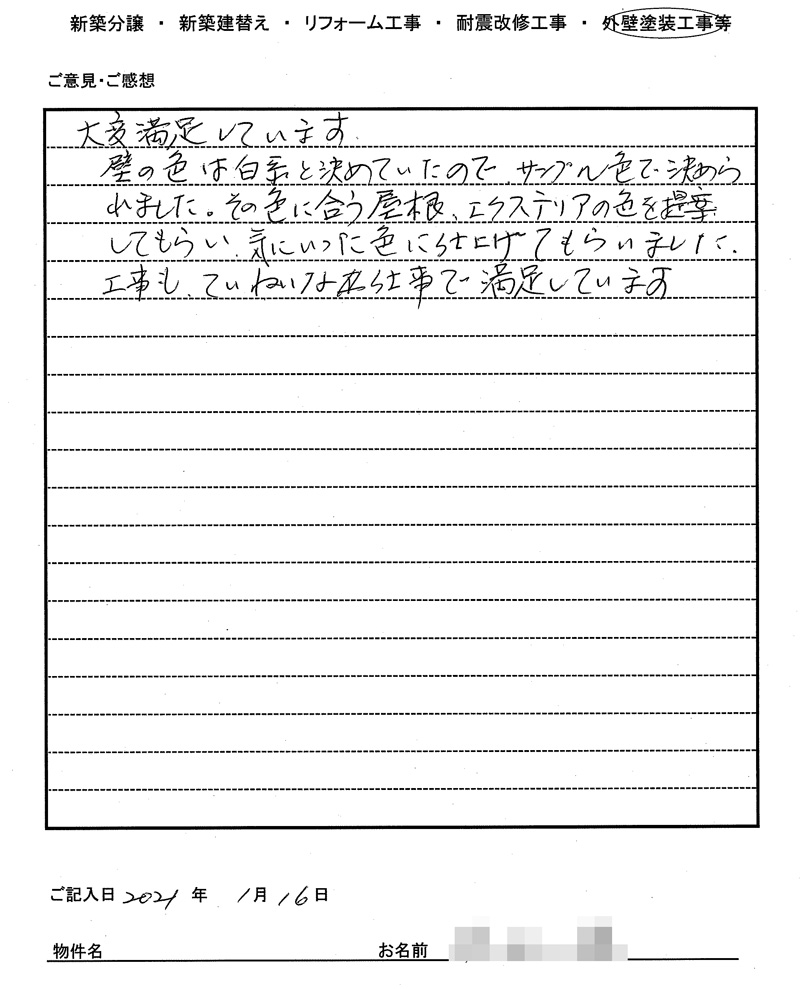 新築分譲 ・ 新築建替え ・ リフォーム工事 ・ 耐震改修工事 ・ 外壁塗装工事等
ご意見・ご感想
大変満足しています.
壁の色は白系と決めていたので、サンプル色で決めら
れました。その色に合う屋根、エクステリアの色を提案
してもらい、気にいった色に仕上げてもらいました.
工事も、ていねいなお仕事で満足しています
ご記入日 2021 年 1月 16日
物件名 お名前